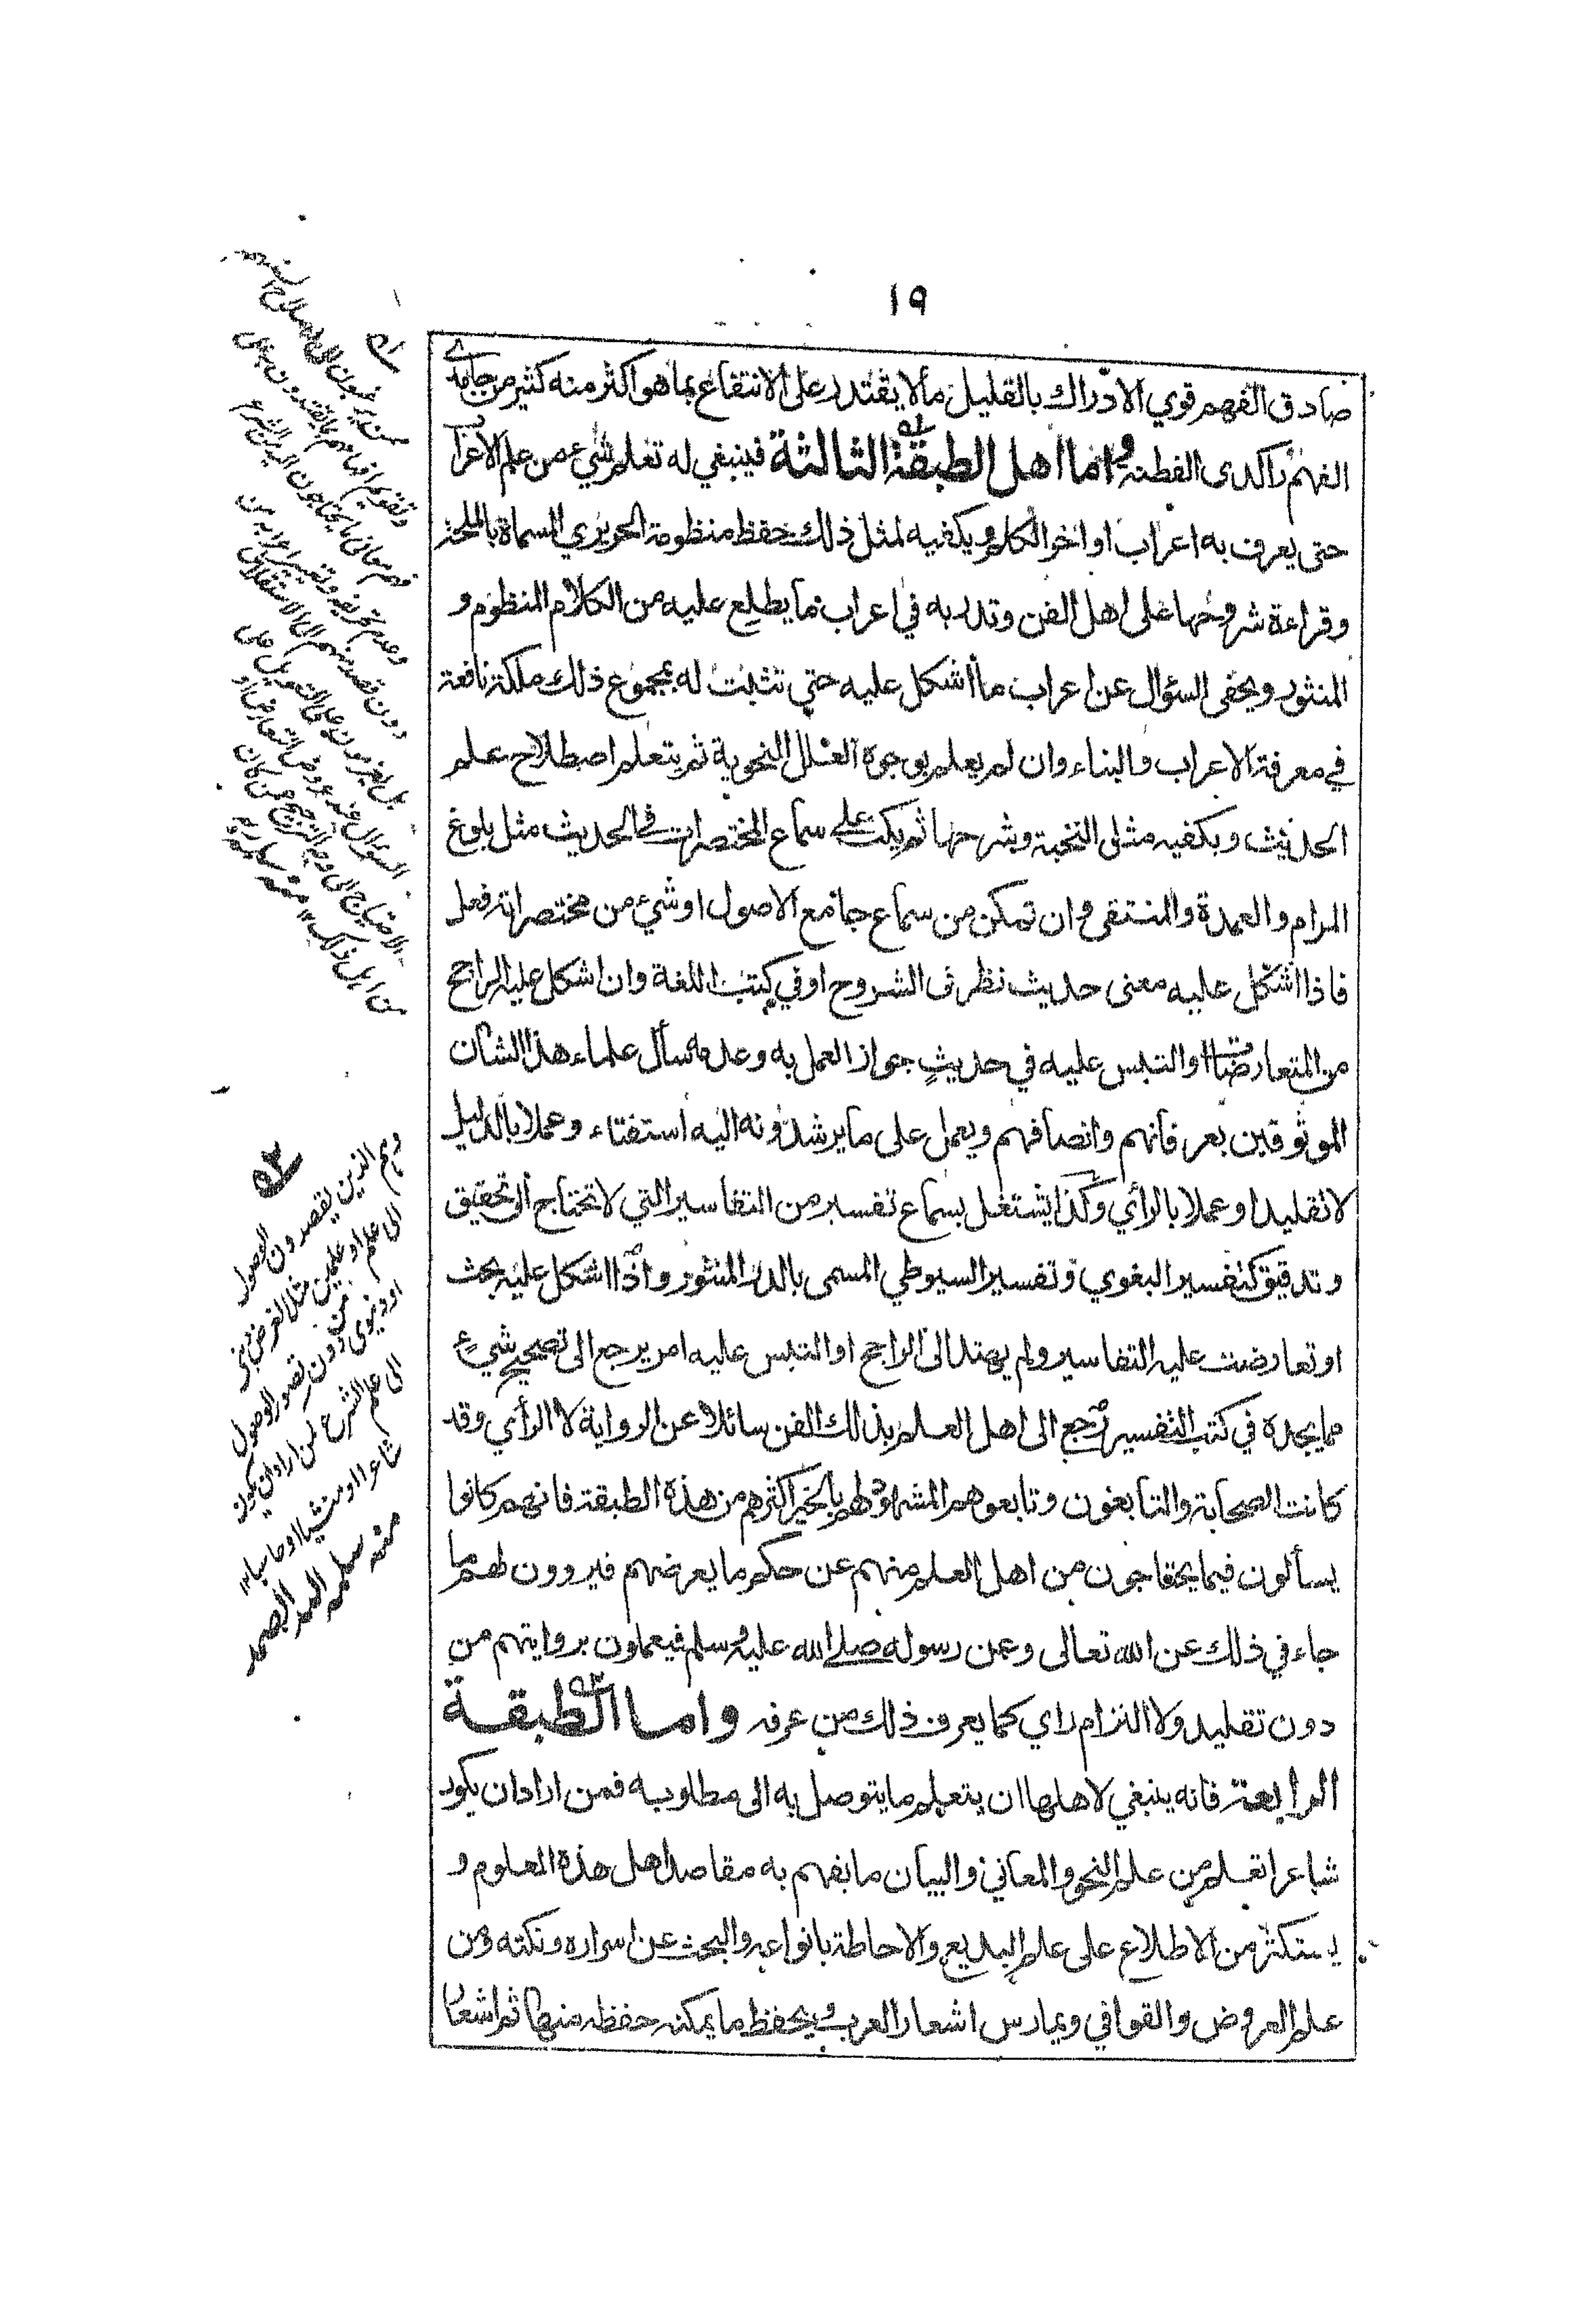 ١٩
صادق الفهم قوي الادراك بالقليل مالا يقتدر على الانتفاع بما هو اكثر منه كثير من جامدي
الفهم راكدى الفطنة واما اهل الطبقة الثالثة فينبغي له تعلم شيء من علم الاعراب
حتى يعرف به اعراب اواخر الكلم ويكفيه لمثل ذلك حفظ منظومة الحريري المسماة بالملحة
وقراءة شروحها على اهل الفن وتدربه في اعراب ما يطلع عليه من الكلام المنظوم و
المنثور ويحفى السؤال عن اعراب ما أشكل عليه حتي تثبت له بمجموع ذلك ملكة نافعة
في معرفة الاعراب والبناء وان لم يعلم بوجوه العلل النحوية ثم يتعلم اصطلاح علم
الحديث ويكفيه مثل النخبة وشرحها ثم يكب على سماع المختصرات في الحديث مثل بلوغ
المرام والعمدة والمنتقى وان تمكن من سماع جامع الاصول او شيء من مختصراته فعل
فاذا اشكل عليه معنى حديث نظر في الشروح او في كتب اللغة وان اشكل عليه الراجح
من المتعارضات او التبس عليه في حديثٍ جواز العمل به وعدمه سأل علماء هذا الشان
الموثوقين بعرفانهم وانصافهم ويعمل على ما يرشدونه اليه استفتاء وعملا بالدليل
لا تقليدا وعملا بالرأي وكذا يشتغل بسماع تفسير من التفاسير التي لا تحتاج الى تحقيق
وتدقيق كتفسير البغوي وتفسير السيوطي المسمى بالدر المنثور واذا اشكل عليه بحث
او تعارضت عليه التفاسير ولم يهتد الى الراجح او التبس عليه امر يرجع الى تصحيح شيء
مما يجده في كتب التفسير رجع الى اهل العلم بذلك الفن سائلا عن الرواية لا الرأي وقد
كانت الصحابة والتابعون وتابعوهم المشهود لهم بالخير اكثرهم من هذه الطبقة فانهم كانوا
يسألون فيما يحتاجون من اهل العلم منهم عن حكم ما يعرضهم فيروون لهم ما
جاء في ذلك عن الله تعالى وعن رسوله صلى الله عليه وسلم فيعملون بروايتهم من
دون تقليد ولا التزام راي كما يعرف ذلك من عرفه واما الطبقة
الرابعة فانه ينبغي لاهلها ان يتعلم ما يتوصل به الى مطلوبه فمن اراد ان يكون
شاعرا تعلم من علم النحو والمعاني والبيان ما يفهم به مقاصد اهل هذه العلوم و
يستكثر من الاطلاع على علم البديع والاحاطة بانواعه والبحث عن اسراره ونكته ومن
علم العروض والقوافي ويمارس اشعار العرب ويحفظ ما يمكنه حفظه منها ثم اشعار
وهم الذين يقصدون الوصول
الى علم او علمين مثلا لغرض ديني
او دنيوى من دون تصور الوصول
الى علم الشرع لمن اراد ان يكون
شاعرا او منشيا او حاسبا ١٢
منه سلمه الله الصمد